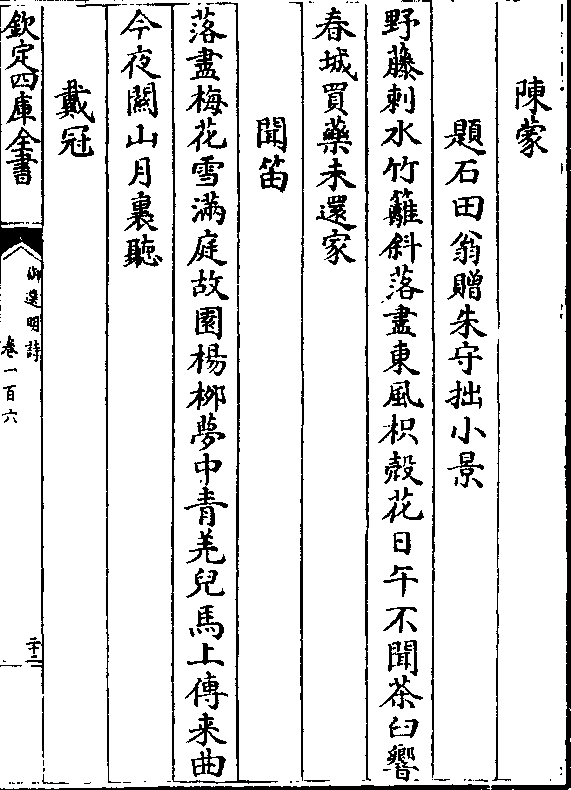 陳蒙
題石田翁贈朱守拙小景
野藤刺水竹籬斜落盡東風枳殼花日午不聞茶臼響
春城買藥未還家
聞笛
落盡梅花雪滿庭故園楊柳夢中青羌兒馬上傳来曲
今夜關山月裏聽
戴冠
欽定四庫全書
御選明詩
卷一百六
二十二